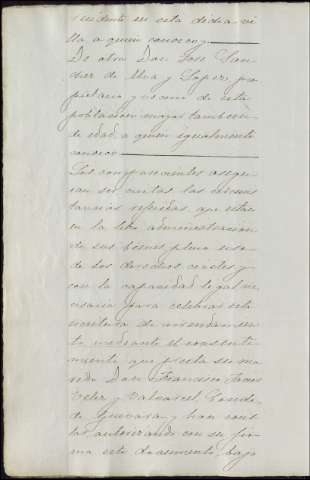 sidente en esta dicha vi-
lla a quien conozco,
De otra Don José San-
chez de Alva y Lopez, pro-
pietario y vecino de esta
poblacion mayor tambien
de edad, a quien igualmente
conozco
Los comparecientes asegu-
ran ser ciertas las circuns-
tancias referidas, que estan
en la libre administracion
de sus bienes, pleno uso
de los derechos civiles, y
con la capacidad legal ne-
cesaria para celebrar esta
escritura de arrendamien-
to, mediante el consenti-
miento que presta su ma-
rido Don Francisco
Velez y Valcarcel Conde
de Guevara, y han
autorizando con su fir-
ma este documento, bajo